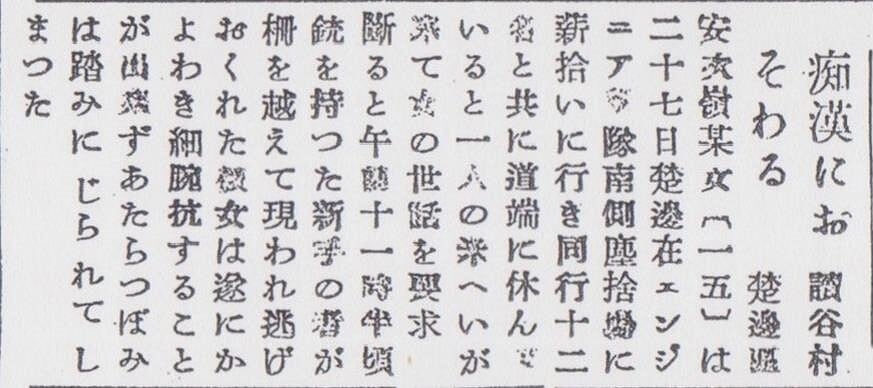 痴漢にお
そわる
讀谷村
楚邊區
安次嶺某女〔一五〕は
二十七日楚邊在エンジ
ニア隊南側塵捨場に
薪拾いに行き同行十二
名と共に道端に休んで
いると一人の米へいが
来て女の世話を要求
断ると午前十一時半頃
銃を持つた新手の者が
柵を越えて現われ逃げ
おくれた彼女は遂にか
よわき細腕抗すること
が出来ずあたらつぼみ
は踏みにじられてし
まつた